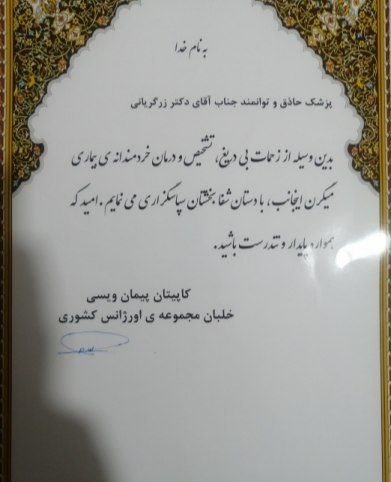 به نام خدا
پزشک حاذق و توانمند جناب آقای دکتر زرگریانی
بدین وسیله از زحمات بی دریغ، تشخیص و درمان خردمندانه ی بیماری
میگرن اینجانب، با دستان شفابخشتان سپاسگزاری می نمایم. امید که
همواره پایدار و تندرست باشید.
کاپیتان پیمان ویسی
خلبان مجموعه ی اورژانس کشوری